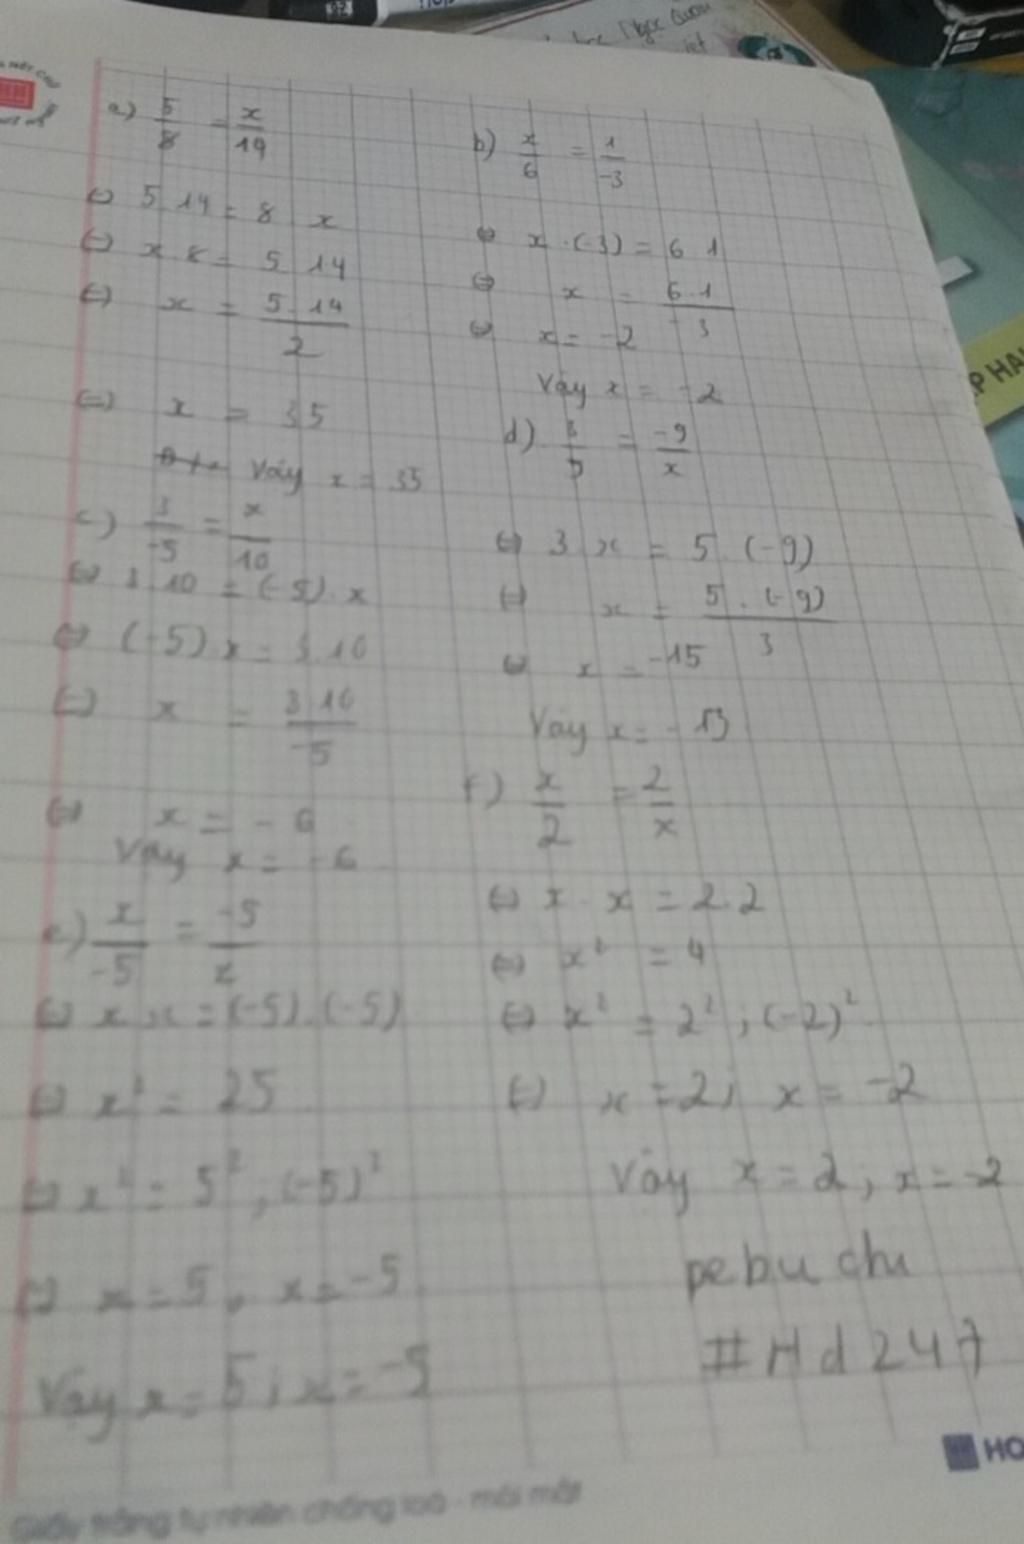 a) 5/8 = x/14
(=) 5 14 = 8 x
(=) x 8 = 5 14
(=) x = 5.14/2
(=) x = 35
Vây x = 35
c) 3/-5 = x/10
(=) 3 10 = (-5).x
(=) (-5) x = 3.10
(=) x = 3 10/-5
(=) x = - 6
Vây x = - 6
e) x/-5 = -5/x
(=) x.x = (-5).(-5)
(=) x² = 25
(=) x² = 5², (-5)²
(=) x = 5, x = -5
Vây x = 5; x = -5
b) x/6 = 1/-3
(=) x.(-3) = 6 1
(=) x = 6.1/-3
(=) x = -2
Vây x = - 2
d) 3/5 = -9/x
(=) 3 x = 5.(-9)
(=) x = 5.(-9)/3
(=) x = -15
Vây x = - 15
f) x/2 = 2/x
(=) x.x = 2.2
(=) x² = 4
(=) x² = 2²; (-2)²
(=) x = 2; x = -2
Vây x = 2; x = -2
pebu chi
#Hd247
HO
Giấy trắng tự nhiên chống loá - mỏi mắt